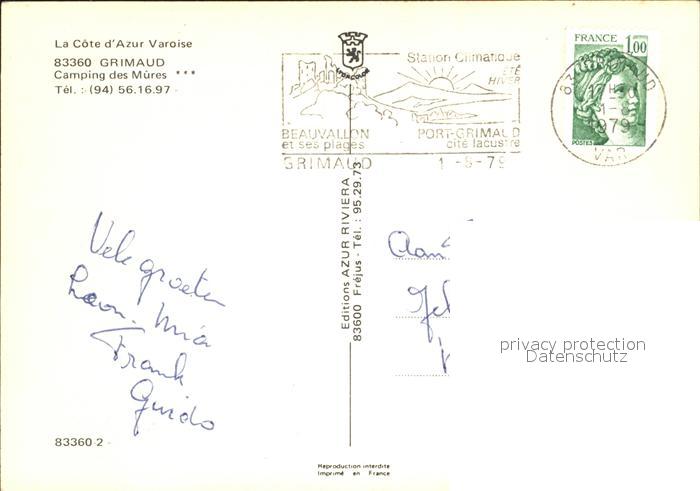 La Côte d'Azur Varoise
83360 GRIMAUD
Camping des Mûres ***
Tél. : (94) 56.16.97 -
Station Climatique
ÉTÉ
HIVER
BEAUVALLON
et ses plages
PORT-GRIMAUD
cité lacustre
GRIMAUD
1 -8-79
FRANCE
1,00
POSTES
1979
VAR
Editions AZUR RIVIERA
83600 Fréjus - Tél. : 95.29.73
Vele groeten
Frank
Guido
Aan
privacy protection
Datenschutz
83360-2 -
Reproduction interdite
Imprimé en France